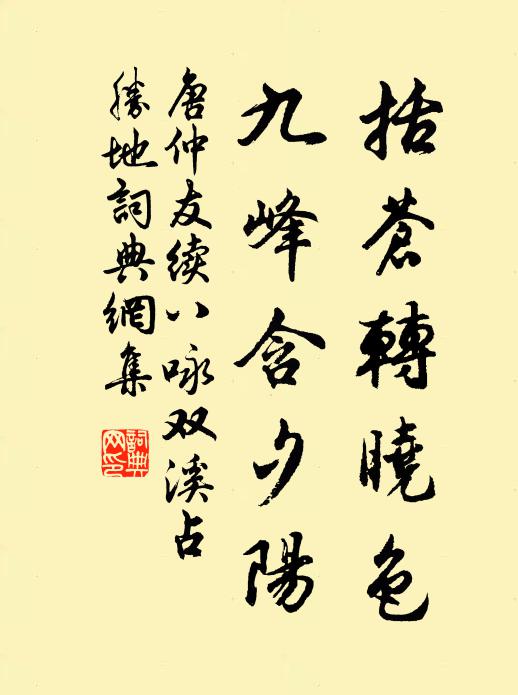 括蒼轉曉色
九峰含夕陽
唐仲友續八咏双溪占
勝地詞典網集
詞典
网印